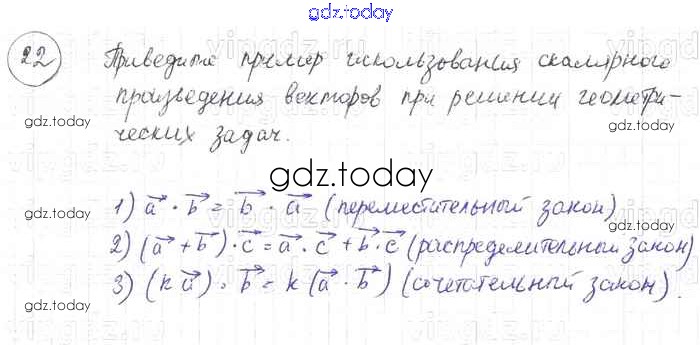 gdz.today
22 Приведите пример использования скалярного
произведения векторов при решении геометри-
ческих задач.
gdz.today
gdz.today
gdz.today
1) a⃗ · b⃗ = b⃗ · a⃗ (переместительный закон)
2) (a⃗ + b⃗) · c⃗ = a⃗ · c⃗ + b⃗ · c⃗ (распределительный закон)
gdz.today
3) (k a⃗) · b⃗ = k (a⃗ · b⃗) (сочетательный закон).
gdz.today